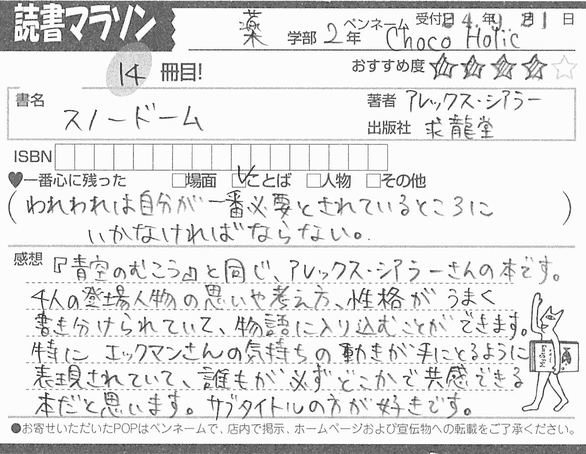 読書マラソン
薬 学部 2年 ペンネーム Choco Holic 受付 24年 9月 1日
14 冊目! おすすめ度 ★★★★☆
書名 スノードーム
著者 アレックス・シアラー
出版社 求龍堂
ISBN
♥一番心に残った □場面 ☑ことば □人物 □その他
(われわれは自分が一番必要とされているところに
いかなければならない。)
感想 『青空のむこう』と同じ、アレックス・シアラーさんの本です。
4人の登場人物の思いや考え方、性格がうまく
書き分けられていて、物語に入り込むことができます。
特に エックマンさんの気持ちの動きが手にとるように
表現されていて、誰もが必ずどこかで共感できる
本だと思います。サブタイトルの方が好きです。
●お寄せいただいたPOPはペンネームで、店内で掲示、ホームページおよび宣伝物への転載をご了承ください。